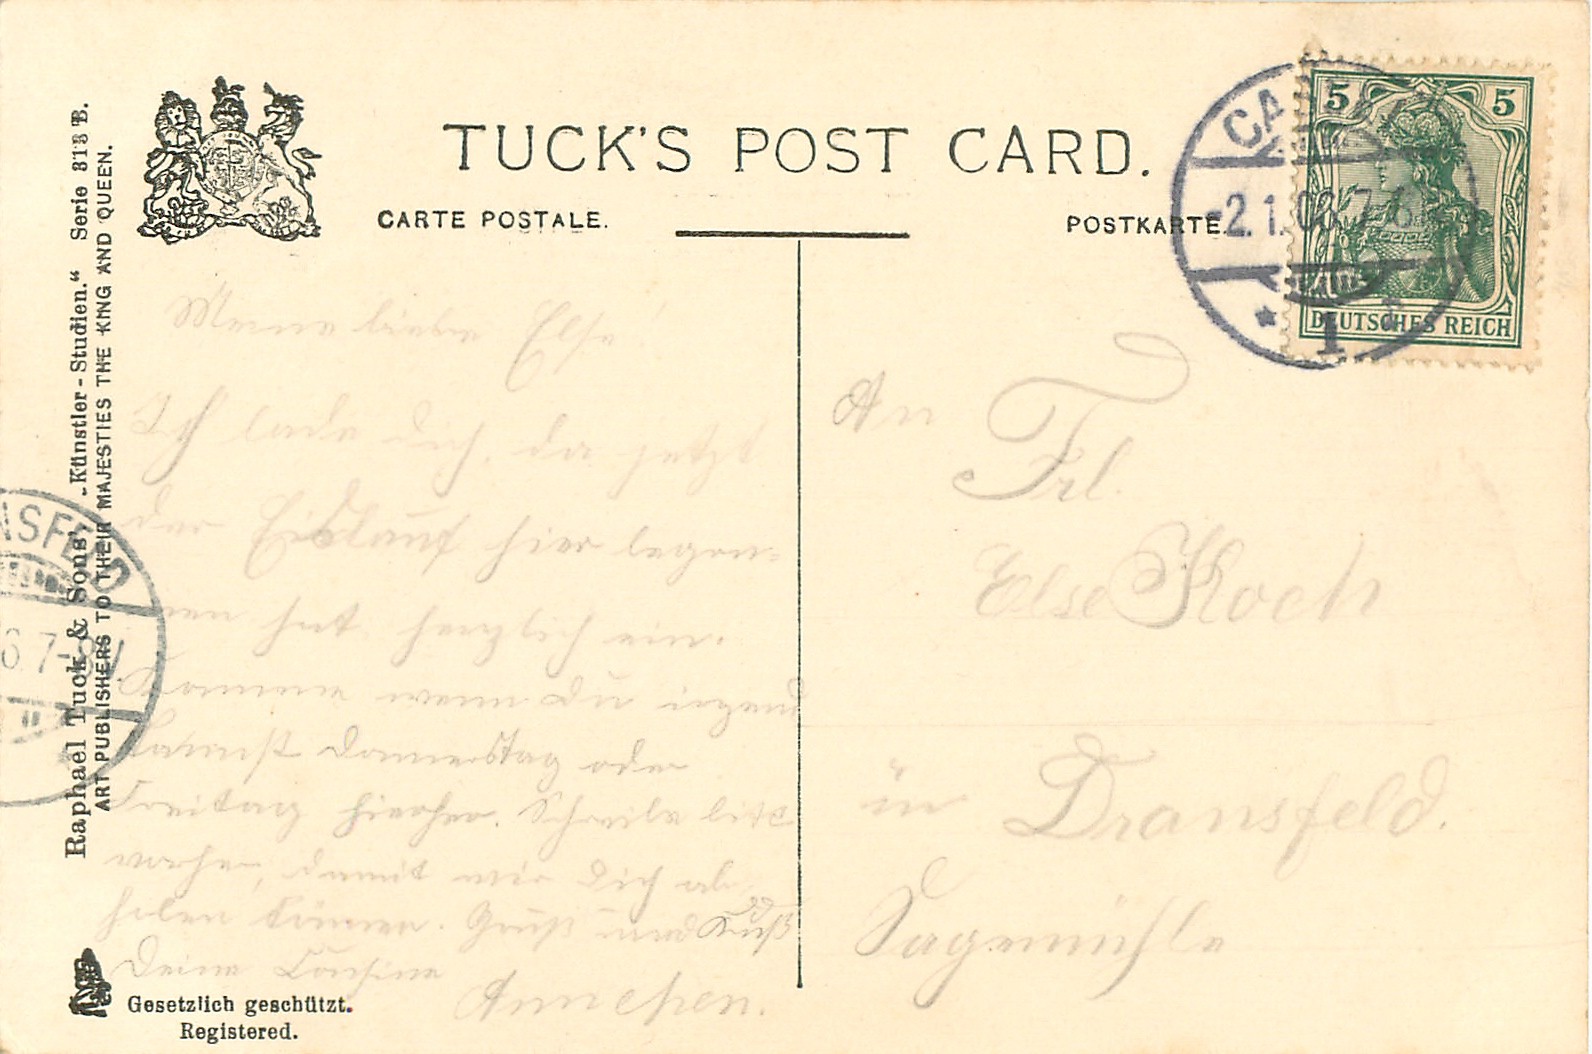 TUCK'S POST CARD.
CARTE POSTALE.
POSTKARTE.
Raphael Tuck & Sons' „Künstler-Studien.“ Serie 813 B.
ART PUBLISHERS TO THEIR MAJESTIES THE KING AND QUEEN.
5 5
DEUTSCHES REICH
CA
2.1.06. 7-8
1
NSFELD
6. 7-8V.
Meine liebe Else!
Ich lade dich, da jetzt
der Eislauf hier begon-
nen hat herzlich ein.
Komme wenn du irgend
kannst Donnerstag oder
Freitag hierher. Schreibe bitte
vorher, damit wir Dich ab
holen können. Gruß und Kuß
Deine Cousine
Annchen.
An
Frl.
Else Koch
in Dransfeld.
Sagemühle
Gesetzlich geschützt.
Registered.